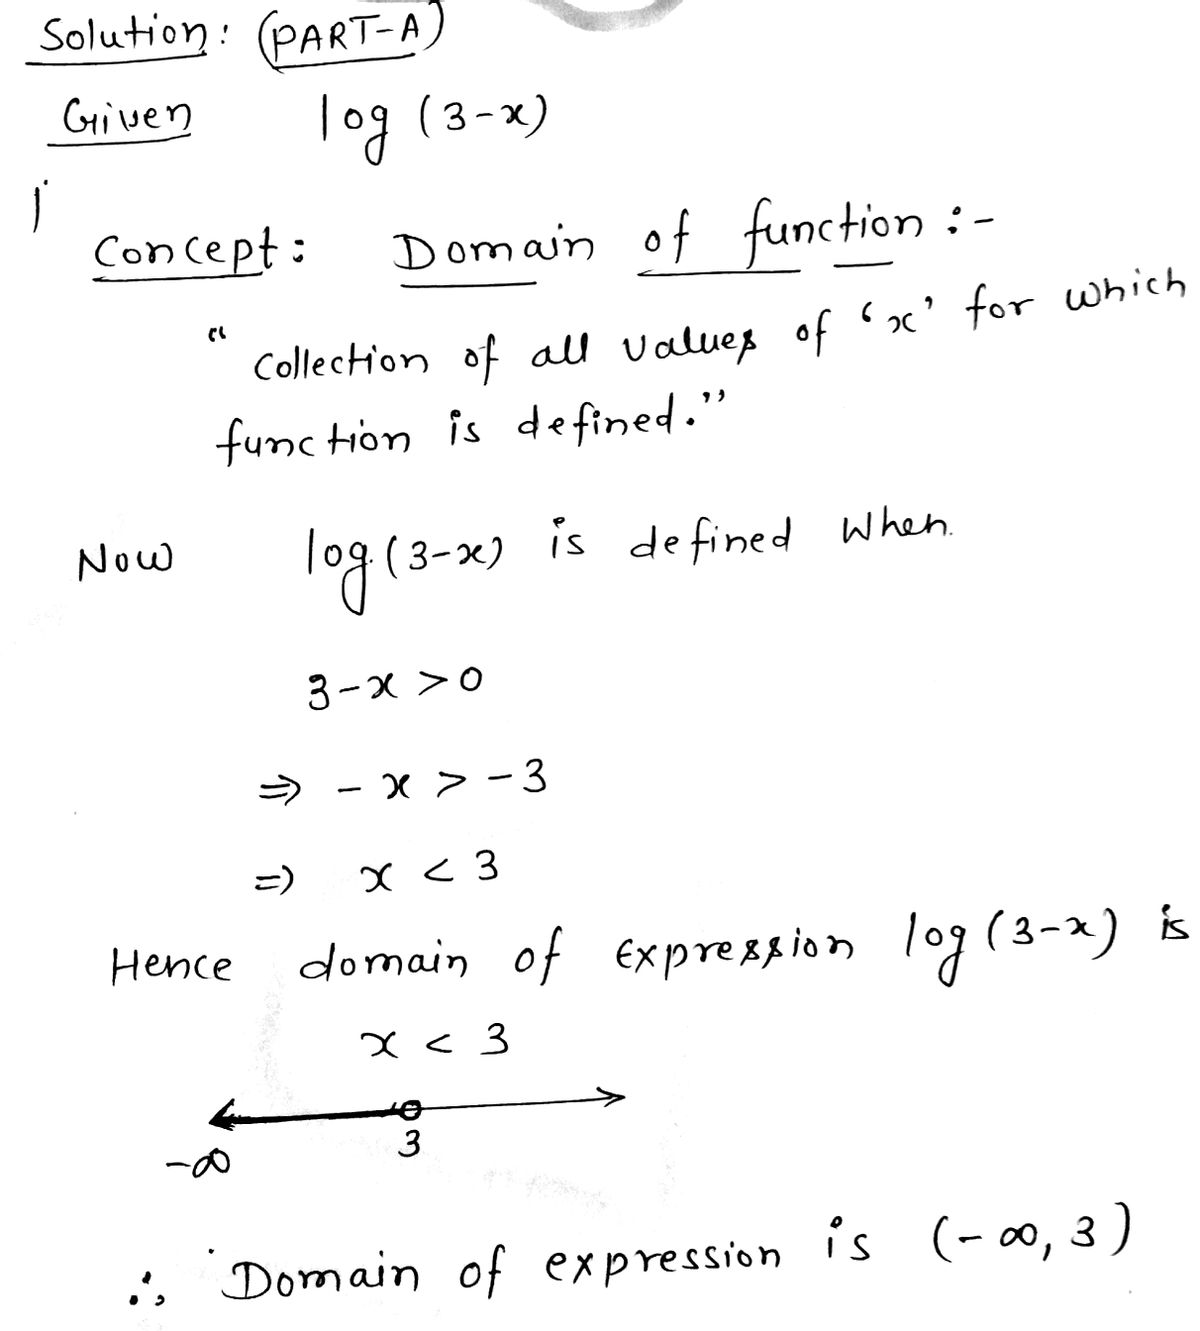 Solution: (PART-A)
Given log (3-x)
Concept: Domain of function :-
"collection of all values of 'x' for which
function is defined."
Now log (3-x) is defined when
3-x > 0
⇒ -x > -3
⇒ x < 3
Hence domain of expression log (3-x) is
x < 3
-∞ 3
∴ Domain of expression is (-∞, 3)